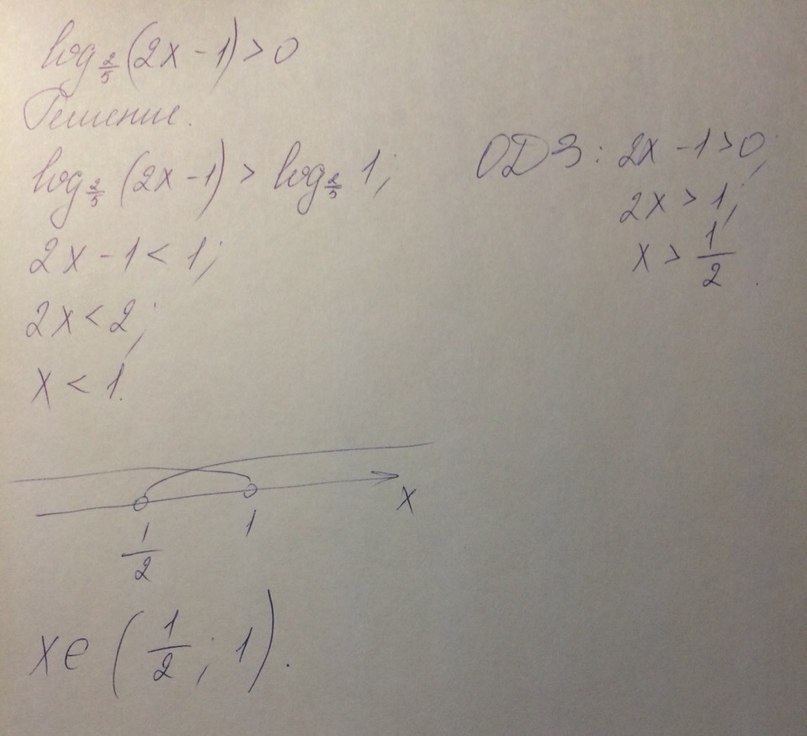 log_{2/5}(2x - 1) > 0
Решение.
log_{2/5}(2x - 1) > log_{2/5} 1;
2x - 1 < 1;
2x < 2;
x < 1.
ОДЗ: 2x - 1 > 0;
2x > 1;
x > 1/2.
1/2 1 x
x ∈ (1/2; 1).